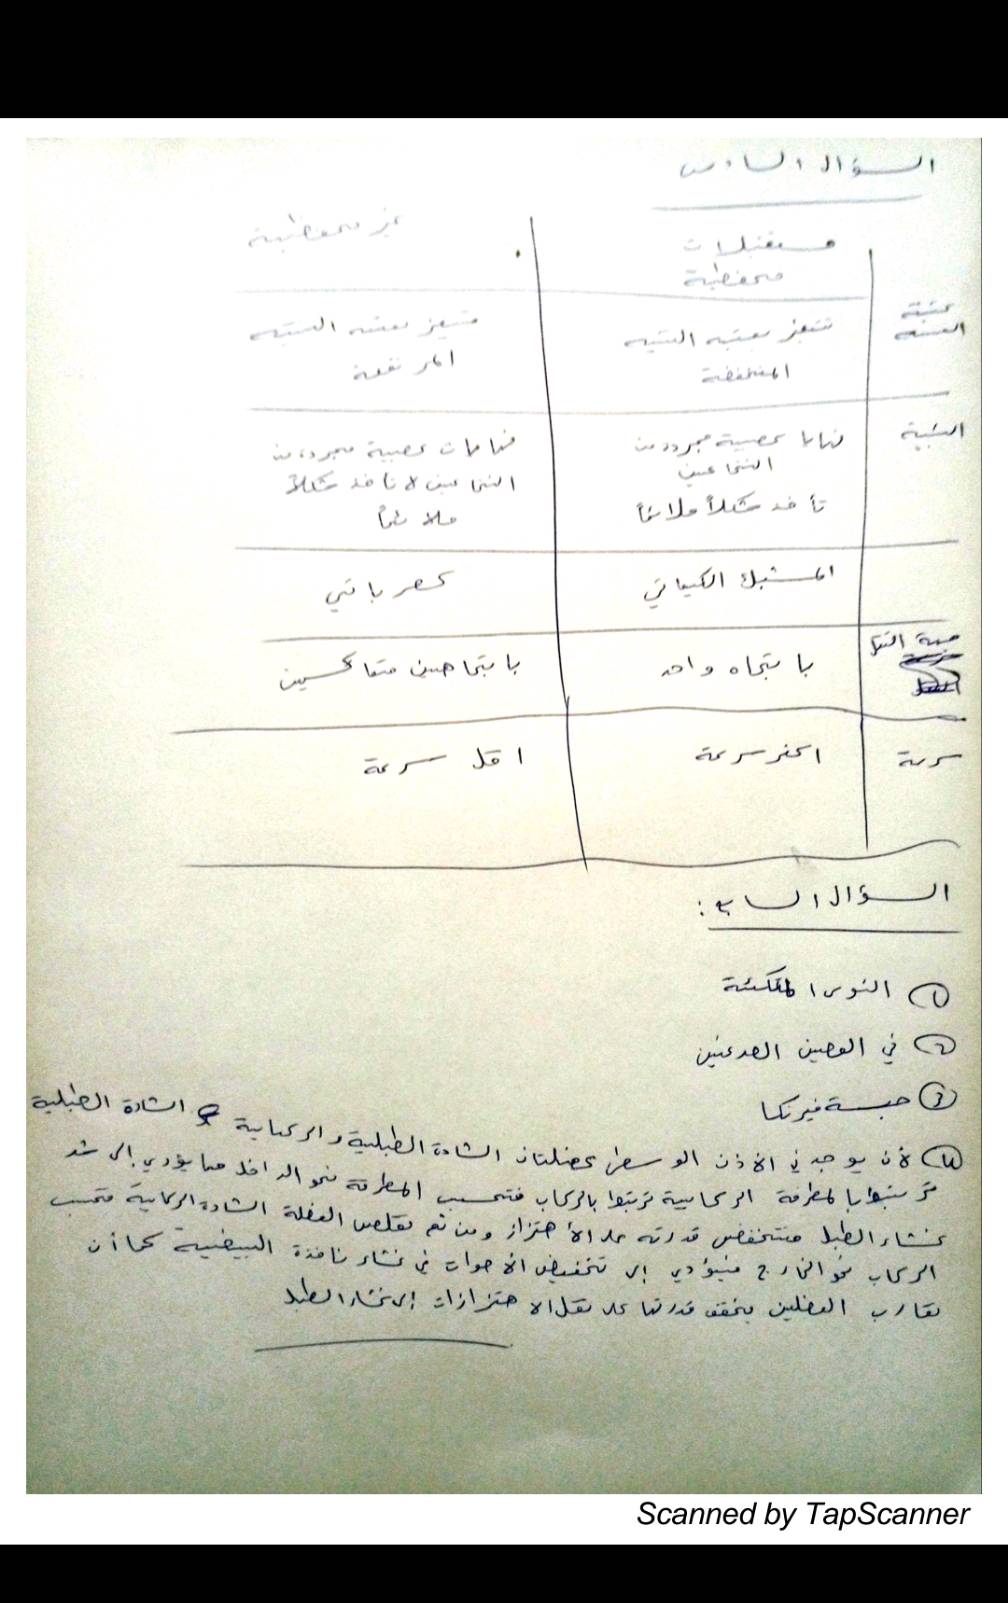 السؤال السادس
مستقبلات محفظية
غير محفظية
عتبة التنبيه
تتميز بعتبة التنبيه المنخفضة
تتميز بعتبة التنبيه المرتفعة
البنية
نهايا عصبية مجردة من
النخاعين
تأخذ شكلاً ملائماً
نهايات عصبية مجردة من
النخاعين لا تأخذ شكلاً
ملائماً
المشبك الكيميائي
كهربائي
جهة النقل
باتجاه واحد
باتجاهين متعاكسين
سرعة
اكثر سرعة
اقل سرعة
السؤال السابع :
① النوى القاعدية
② في الفصين الصدغيين
③ حبسة فيرنكا
④ لأن يوجد في الأذن الوسطى عضلتان الشادة الطبلية والركابية الشادة الطبلية
ترتبط بالمطرقة الركابية ترتبط بالركاب فتسحب المطرقة نحو الداخل مما يؤدي إلى شد
غشاء الطبل فتنخفض قدرته على الأهتزاز ومن ثم تقلص العضلة الشادة الركابية فتسحب
الركاب نحو الخارج فيؤدي إلى تخفيض الأصوات في غشاء نافذة البيضية كما أن
تقارب العضلين يخفف قدرتها على نقل الاهتزازات إلى غشاء الطبل
Scanned by TapScanner